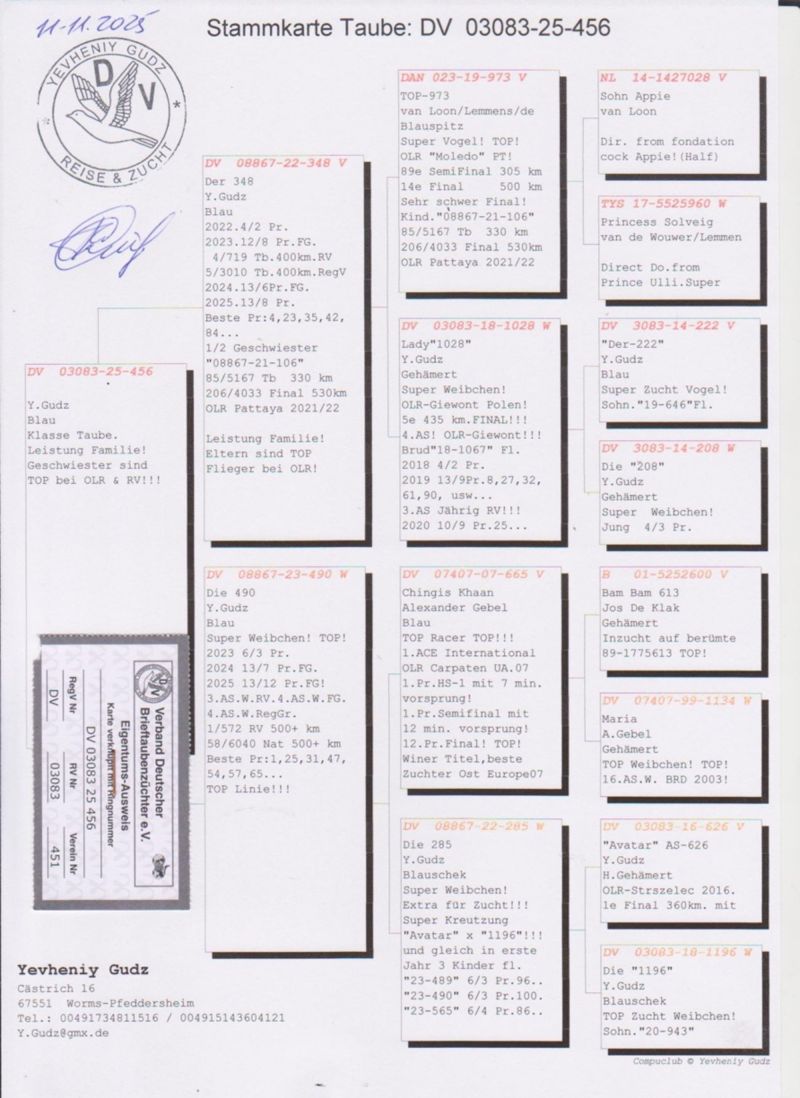 11-11.2025
Stammkarte Taube: DV 03083-25-456
YEVHENIY GUDZ
DV
* REISE & ZUCHT *
DV 03083-25-456
Y.Gudz
Blau
Klasse Taube.
Leistung Familie!
Geschwiester sind
TOP bei OLR & RV!!!
DV 08867-22-348 V
Der 348
Y.Gudz
Blau
2022.4/2 Pr.
2023.12/8 Pr.FG.
4/719 Tb.400km.RV
5/3010 Tb.400km.RegV
2024.13/6Pr.FG.
2025.13/8 Pr.
Beste Pr:4,23,35,42,
84...
1/2 Geschwiester
"08867-21-106"
85/5167 Tb 330 km
206/4033 Final 530km
OLR Pattaya 2021/22
Leistung Familie!
Eltern sind TOP
Flieger bei OLR!
DV 08867-23-490 W
Die 490
Y.Gudz
Blau
Super Weibchen! TOP!
2023 6/3 Pr.
2024 13/7 Pr.FG.
2025 13/12 Pr.FG!
3.AS.W.RV.4.AS.W.FG.
4.AS.W.RegGr.
1/572 RV 500+ km
58/6040 Nat 500+ km
Beste Pr:1,25,31,47,
54,57,65...
TOP Linie!!!
DAN 023-19-973 V
TOP-973
van Loon/Lemmens/de
Blauspitz
Super Vogel! TOP!
OLR "Moledo" PT!
89e SemiFinal 305 km
14e Final 500 km
Sehr schwer Final!
Kind."08867-21-106"
85/5167 Tb 330 km
206/4033 Final 530km
OLR Pattaya 2021/22
DV 03083-18-1028 W
Lady"1028"
Y.Gudz
Gehämert
Super Weibchen!
OLR-Giewont Polen!
5e 435 km.FINAL!!!
4.AS! OLR-Giewont!!!
Brud"18-1067" Fl.
2018 4/2 Pr.
2019 13/9Pr.8,27,32,
61,90, usw...
3.AS Jährig RV!!!
2020 10/9 Pr.25...
DV 07407-07-665 V
Chingis Khaan
Alexander Gebel
Blau
TOP Racer TOP!!!
1.ACE International
OLR Carpaten UA.07
1.Pr.HS-1 mit 7 min.
vorsprung!
1.Pr.Semifinal mit
12 min. vorsprung!
12.Pr.Final! TOP!
Winer Titel,beste
Zuchter Ost Europe07
DV 08867-22-285 W
Die 285
Y.Gudz
Blauschek
Super Weibchen!
Extra für Zucht!!!
Super Kreutzung
"Avatar" x "1196"!!!
und gleich in erste
Jahr 3 Kinder fl.
"23-489" 6/3 Pr.96..
"23-490" 6/3 Pr.100.
"23-565" 6/4 Pr.86..
NL 14-1427028 V
Sohn Appie
van Loon
Dir. from fondation
cock Appie!(Half)
TYS 17-5525960 W
Princess Solveig
van de Wouwer/Lemmen
Direct Do.from
Prince Ulli.Super
DV 3083-14-222 V
"Der-222"
Y.Gudz
Blau
Super Zucht Vogel!
Sohn."19-646"Fl.
DV 3083-14-208 W
Die "208"
Y.Gudz
Gehämert
Super Weibchen!
Jung 4/3 Pr.
B 01-5252600 V
Bam Bam 613
Jos De Klak
Gehämert
Inzucht auf berümte
89-1775613 TOP!
DV 07407-99-1134 W
Maria
A.Gebel
Gehämert
TOP Weibchen! TOP!
16.AS.W. BRD 2003!
DV 03083-16-626 V
"Avatar" AS-626
Y.Gudz
H.Gehämert
OLR-Strszelec 2016.
1e Final 360km. mit
DV 03083-18-1196 W
Die "1196"
Y.Gudz
Blauschek
TOP Zucht Weibchen!
Sohn."20-943"
Verband Deutscher
Brieftaubenzüchter e.V.
Eigentums-Ausweis
Karte verknüpft mit Ringnummer
DV 03083 25 456
RegV Nr RV Nr Verein Nr
DV 03083 451
Yevheniy Gudz
Cästrich 16
67551 Worms-Pfeddersheim
Tel.: 00491734811516 / 004915143604121
Y.Gudz@gmx.de
Compuclub © Yevheniy Gudz